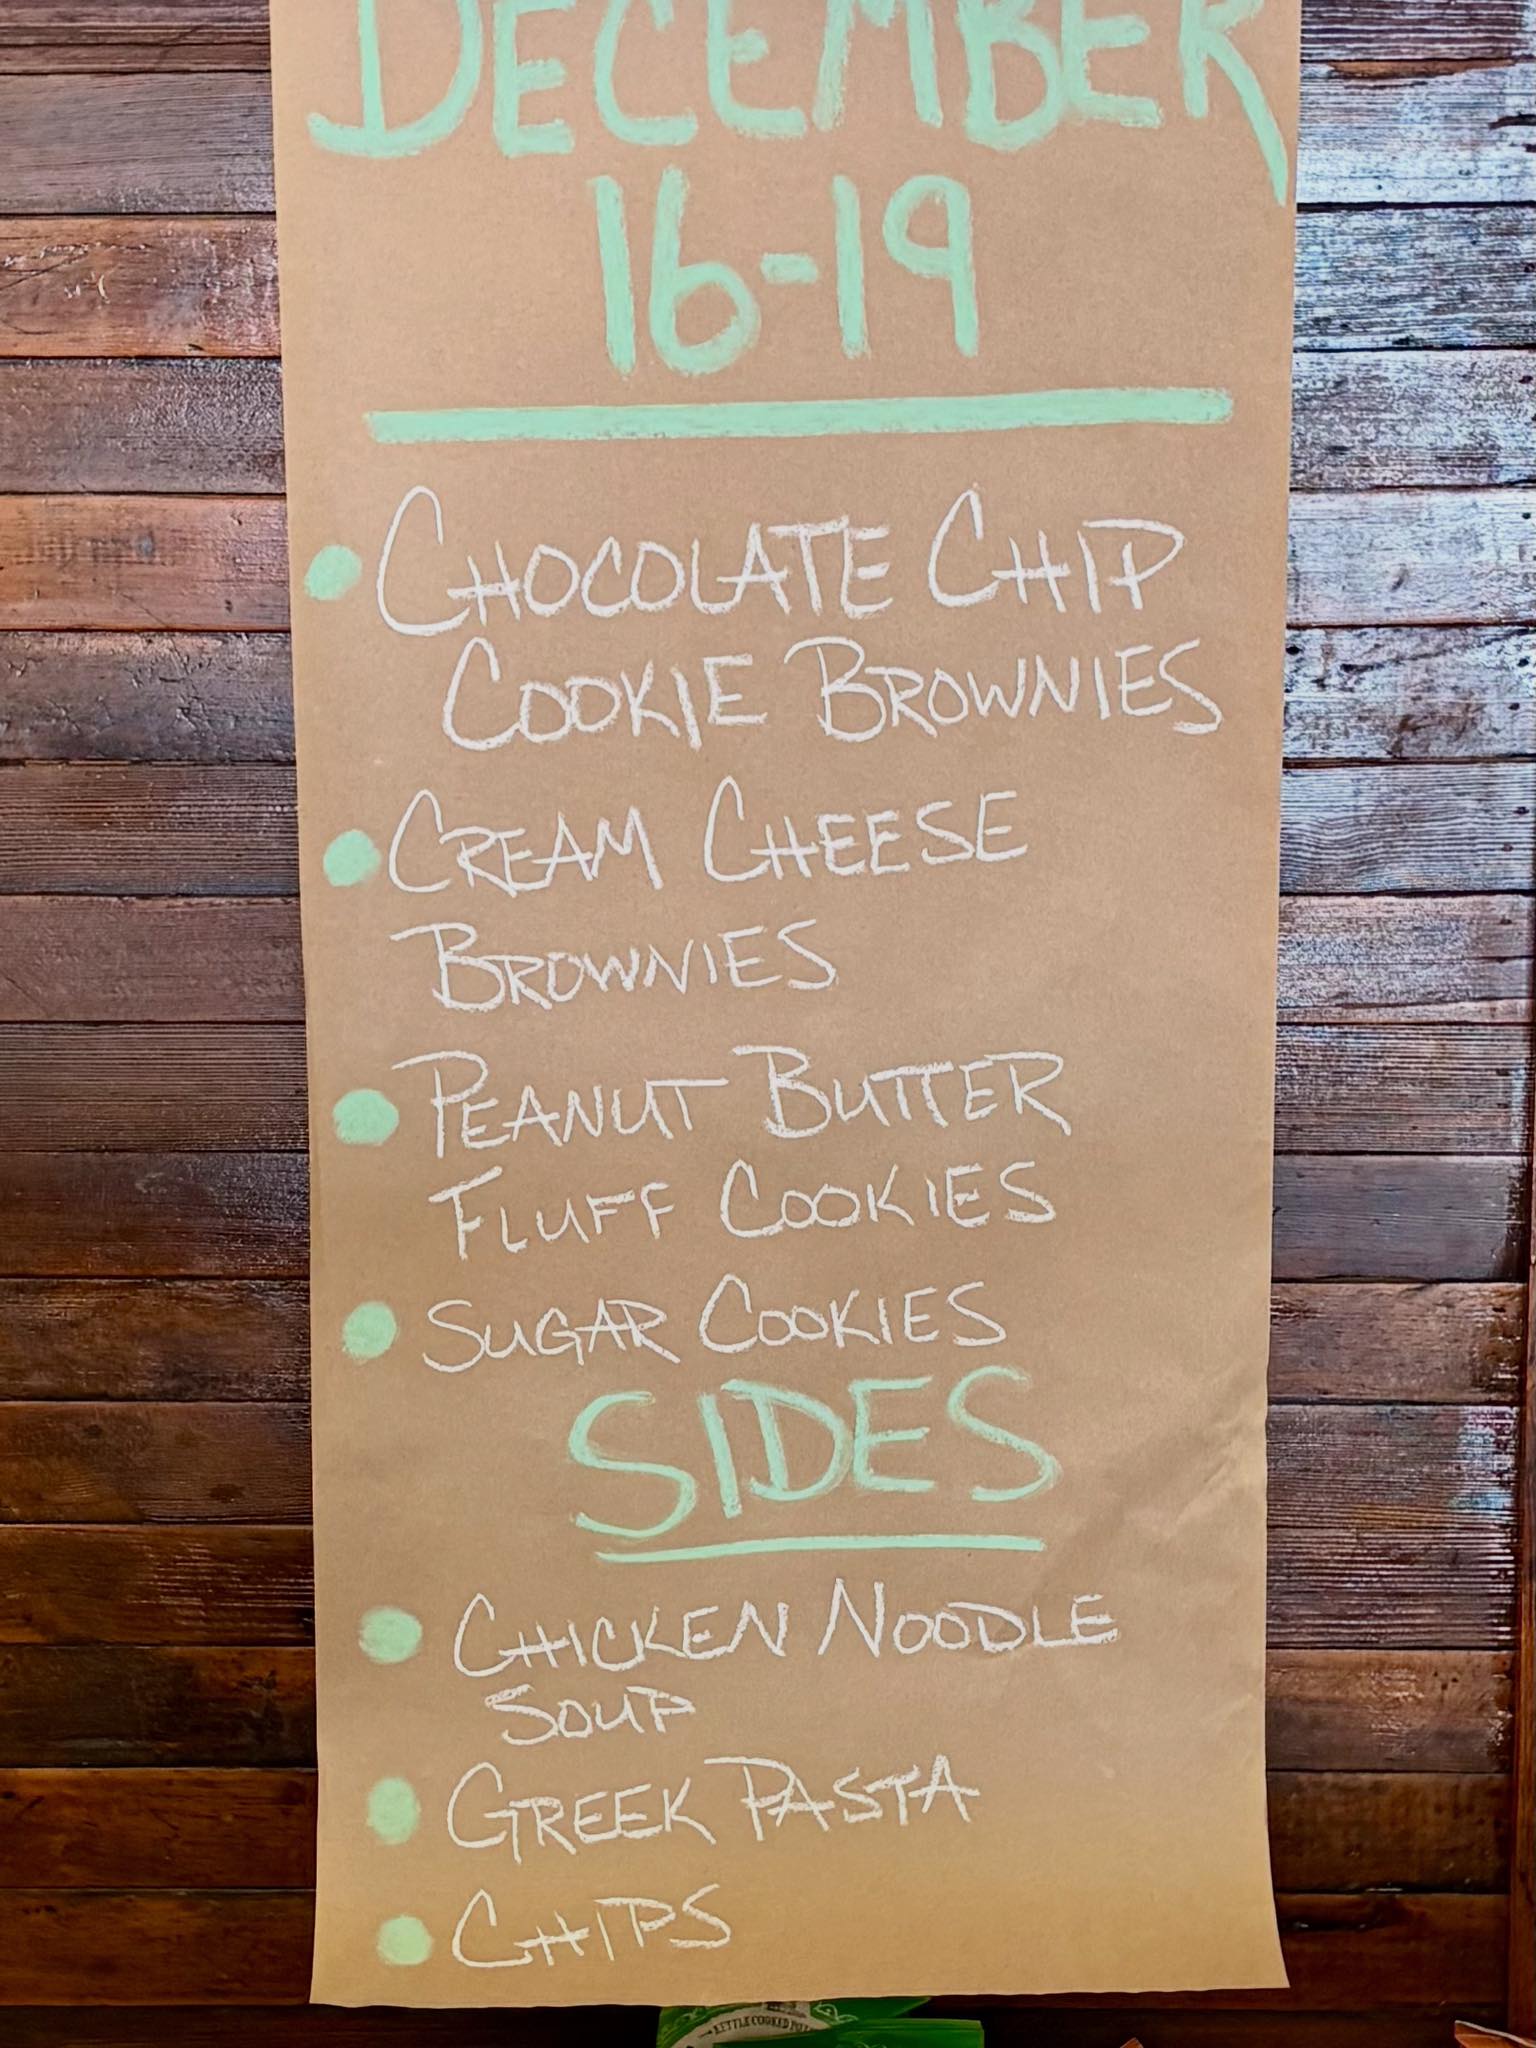 DECEMBER
16-19
• CHOCOLATE CHIP
COOKIE BROWNIES
• CREAM CHEESE
BROWNIES
• PEANUT BUTTER
FLUFF COOKIES
• SUGAR COOKIES
SIDES
• CHICKEN NOODLE
SOUP
• GREEK PASTA
• CHIPS
KETTLE COOKED